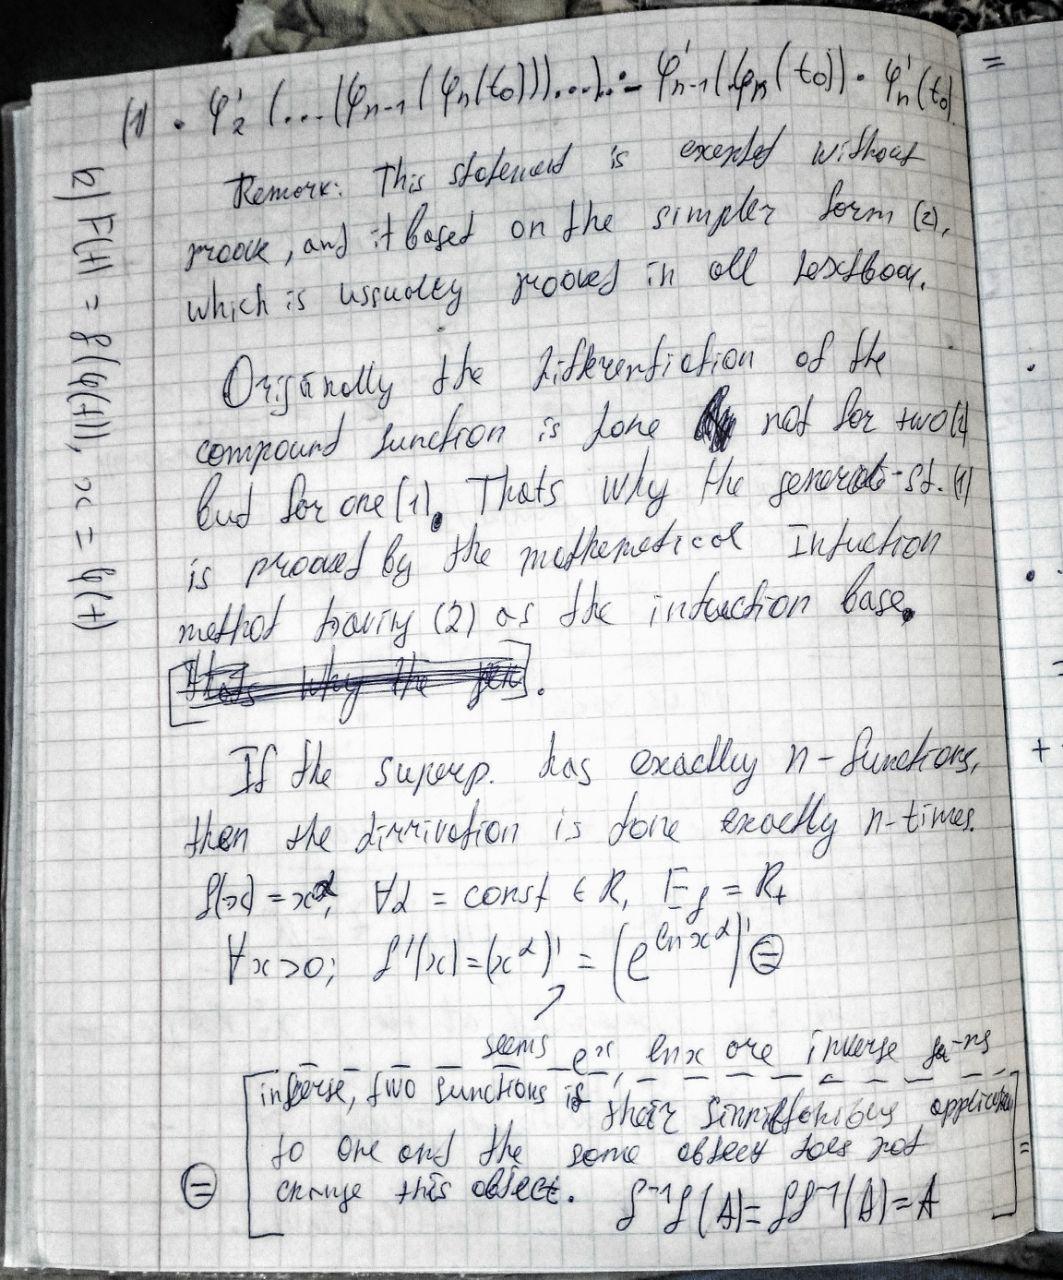 (1) · φ'₂ (...(φₙ₋₁(φₙ(t₀)))...)·...· φ'ₙ₋₁(φₙ(t₀)) · φ'ₙ(t₀)
Remork: This statement is
without
proove, and it based on the simpler form (2),
which is ussualty prooved in all textbook.
b) F(t) = f(φ(t)), x = φ(t)
Originolly the differentiation of the
compound function is done not for two (2)
but for one (1). Thats why the general-st. (1)
is prooved by the mathematical Induction
method having (2) as the induction base.
Thats why the gen
If the superp. has exactly n-functions,
then the dirrivation is done exactly n-times.
f(x) = x^α, ∀α = const ∈ R, E_f = R₊
∀x>0; f'(x) = (x^α)' = (e^(ln x^α))' ⊜
seems eˣ, lnx are inverse fu-ns
inverse, two functions if their application
to one and the some object does not
⊜ change this object. f⁻¹f(A) = ff⁻¹(A) = A
=